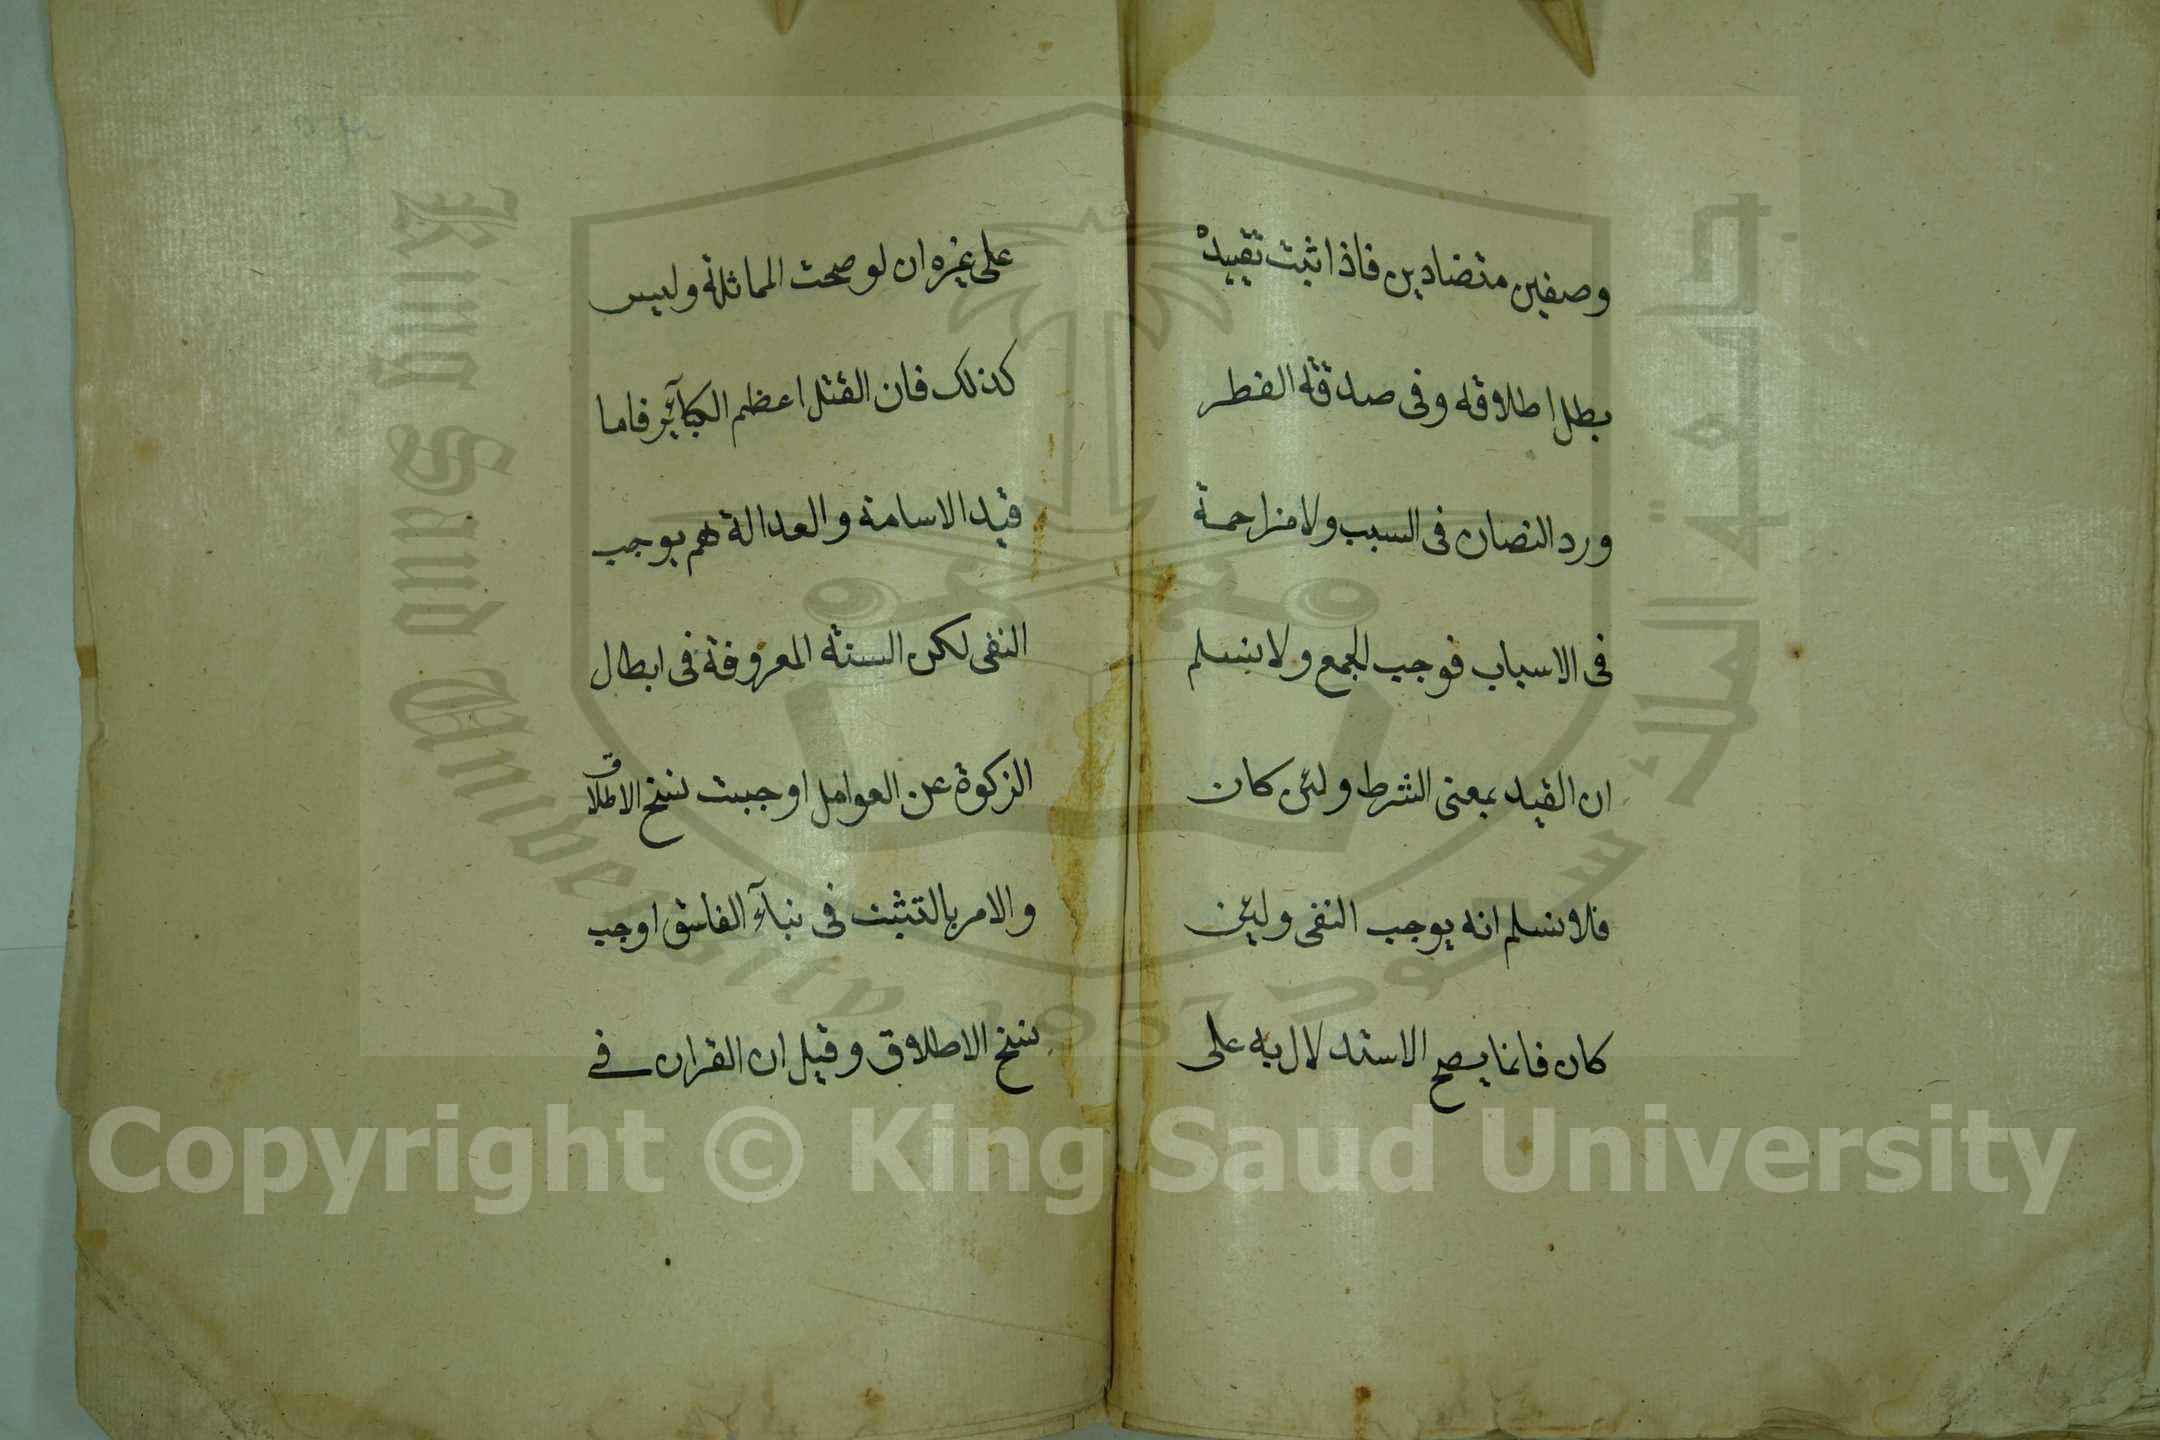 وصفين متضادين فاذا ثبت تقييده
بطل اطلاقه وفى صدقة الفطر
ورد النصان فى السبب ولا مزاحمة
فى الاسباب فوجب الجمع ولا نسلم
ان القيد بمعنى الشرط ولئن كان
فلا نسلم انه يوجب النفى ولئن
كان فانما يصح الاستدلال به على
على غيره ان لو صحت المماثلة وليس
كذلك فان القتل اعظم الكبآئر فاما
قيد الاسامة والعدالة لم يوجب
النفى لكن السنة المعروفة فى ابطال
الزكوة عن العوامل اوجبت نسخ الاطلاق
والامر بالتثبت فى نبآء الفاسق اوجب
نسخ الاطلاق وقيل ان القران فى
جامعة الملك سعود
King Saud University
1957
Copyright © King Saud University